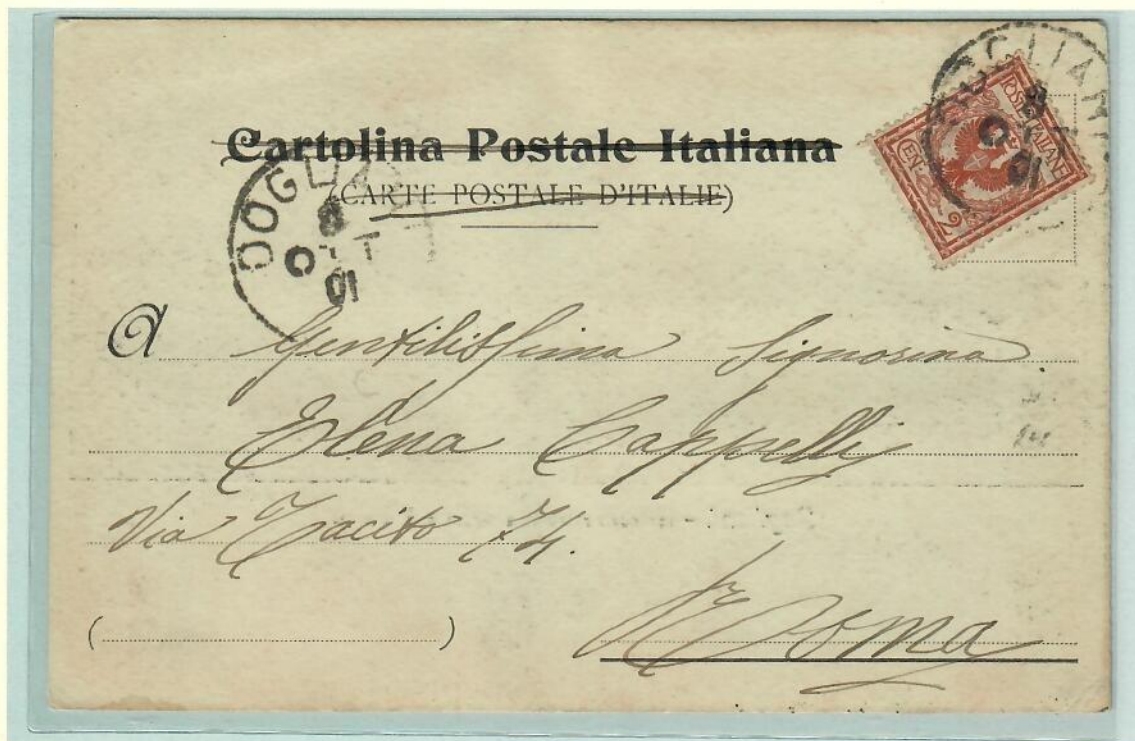 Cartolina Postale Italiana
(CARTE POSTALE D'ITALIE)
POSTE ITALIANE
CENT. 2
DOGLIANI
8
OTT
01
A Gentilissima Signorina
Elena Cappelli
Via Tacito 74.
Roma